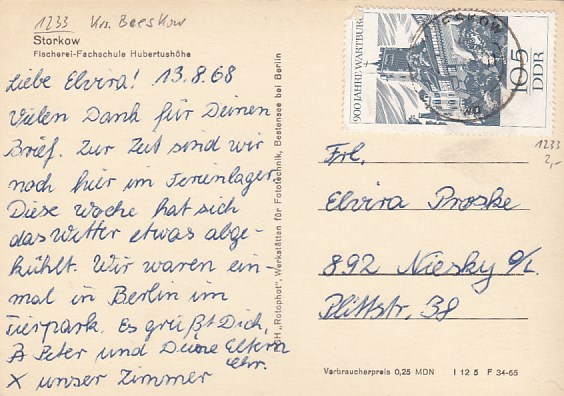 1233 Krs. Beeskow
Storkow
Fischerei-Fachschule Hubertushöhe
Liebe Elvira! 13.8.68
Vielen Dank für Deinen
Brief. Zur Zeit sind wir
noch hier im Ferienlager
Diese Woche hat sich
das Wetter etwas abge-
kühlt. Wir waren ein-
mal in Berlin im
Tierpark. Es grüßt Dich,
Peter und Deine Eltern
Chr.
X unser Zimmer
"Rotophot", Werkstätten für Fototechnik, Bestensee bei Berlin
900 JAHRE WARTBURG
10+5
DDR
STORKOW
1233
2,-
Frl.
Elvira Proske
892 Niesky O/L.
Plittstr. 38
Verbraucherpreis 0,25 MDN I 12 5 F 34-65